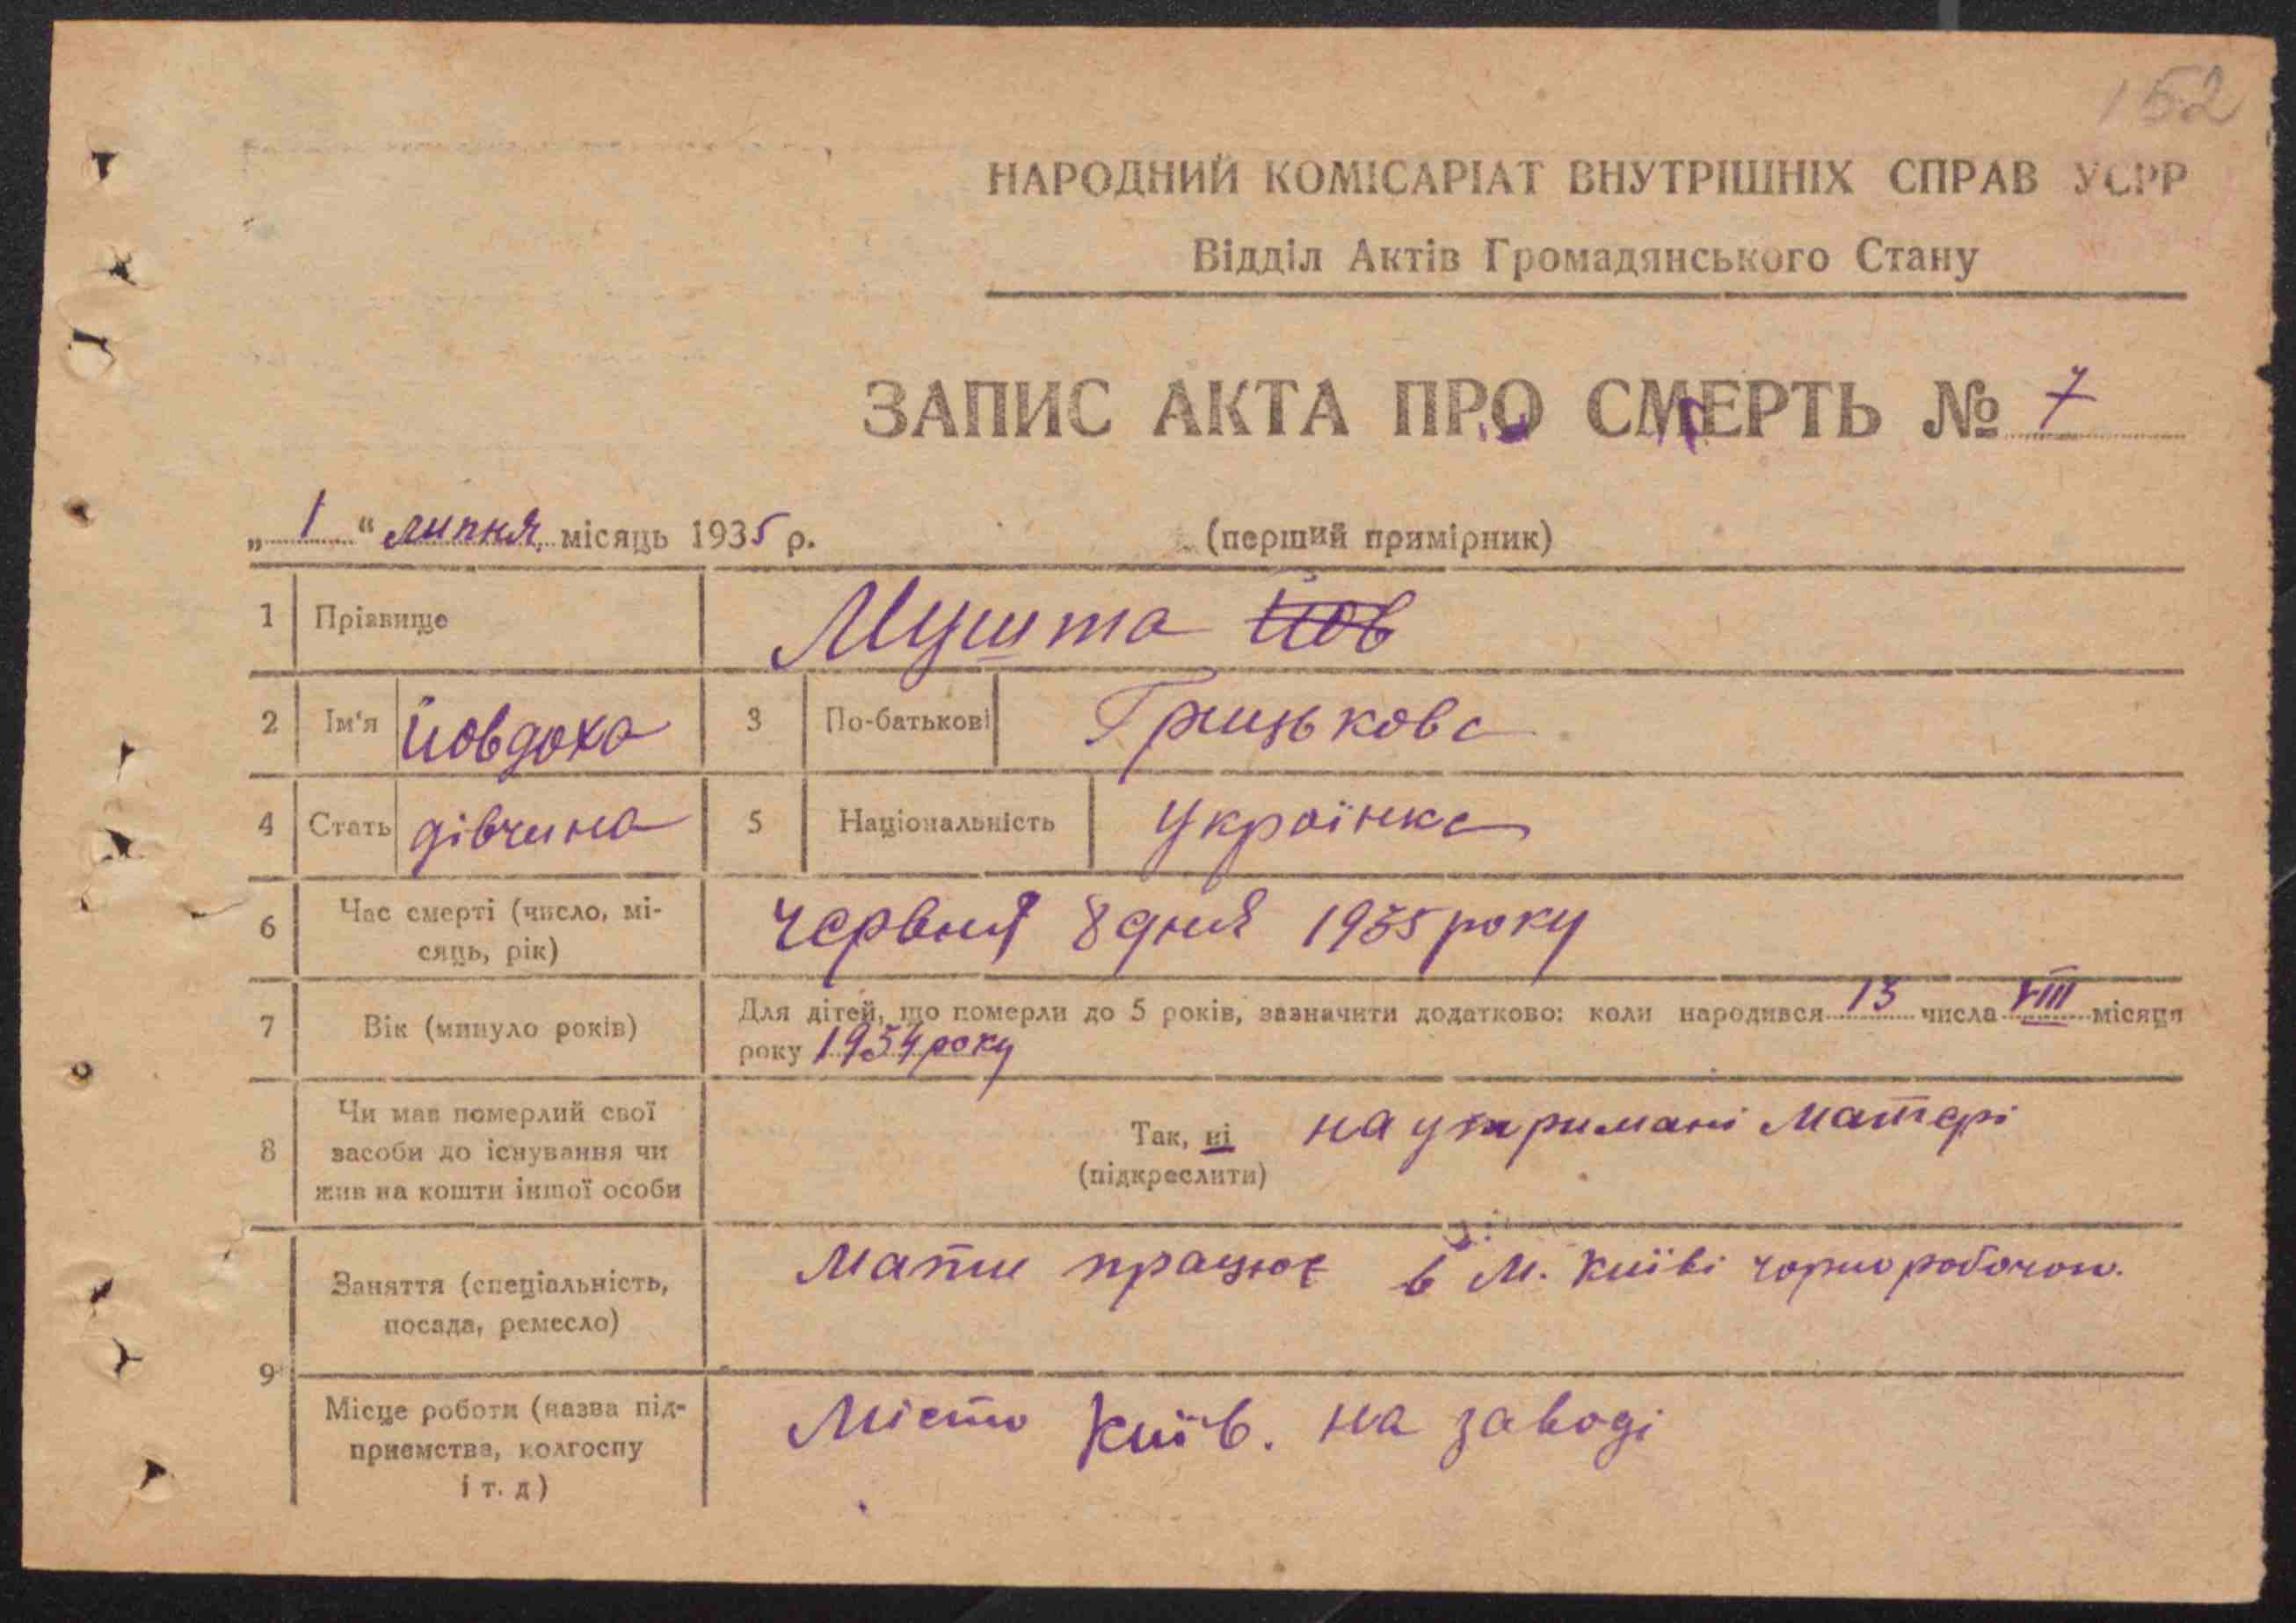 152
НАРОДНИЙ КОМІСАРІАТ ВНУТРІШНІХ СПРАВ УСРР
Відділ Актів Громадянського Стану
ЗАПИС АКТА ПРО СМЕРТЬ № 7
„ 1 “ липня місяць 1935 р. (перший примірник)
1 Прізвище Мушта Йов
2 Ім‘я Йовдоха 3 По-батькові Грицькова
4 Стать дівчина 5 Національність українка
6 Час смерті (число, мі-
сяць, рік) червня 8 дня 1935 року
7 Вік (минуло років) Для дітей, що померли до 5 років, зазначити додатково: коли народився 13 числа VIII місяця
року 1934 року
8 Чи мав померлий свої
засоби до існування чи
жив на кошти іншої особи
Так, ні на утримані матері
(підкреслити)
9 Заняття (спеціальність,
посада, ремесло)
мати працює в м. Київі чорноробочою.
Місце роботи (назва під-
приємства, колгоспу
і т. д)
Місто Київ. на заводі